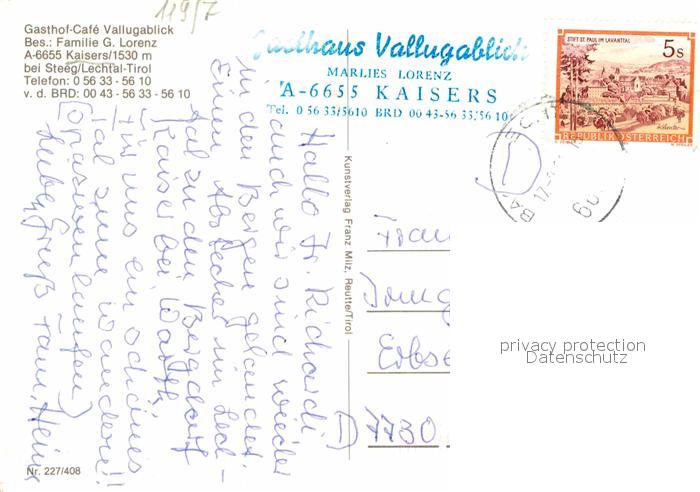 119/7
Gasthof-Café Vallugablick
Bes.: Familie G. Lorenz
A-6655 Kaisers/1530 m
bei Steeg/Lechtal-Tirol
Telefon: 0 56 33 - 56 10
v. d. BRD: 00 43 - 56 33 - 56 10
Gasthaus Vallugablick
MARLIES LORENZ
A-6655 KAISERS
Tel. 0 56 33/5610 BRD 00 43-56 33/56 10
STIFT ST. PAUL IM LAVANTTAL
5s
REPUBLIK ÖSTERREICH
Hallo Fr. Richardi
auch wir sind wieder
in den Bergen gelandet.
Einen Abstecher ins Lech-
tal zu den Bergdorf
Kaisers bei
Für uns ein schönes
Tal zum Wandern!!
Liebe Grüße Fam. Heine
Kunstverlag Franz Milz, Reutte/Tirol
Frau
Erbse
D 7730
privacy protection
Datenschutz
Nr. 227/408